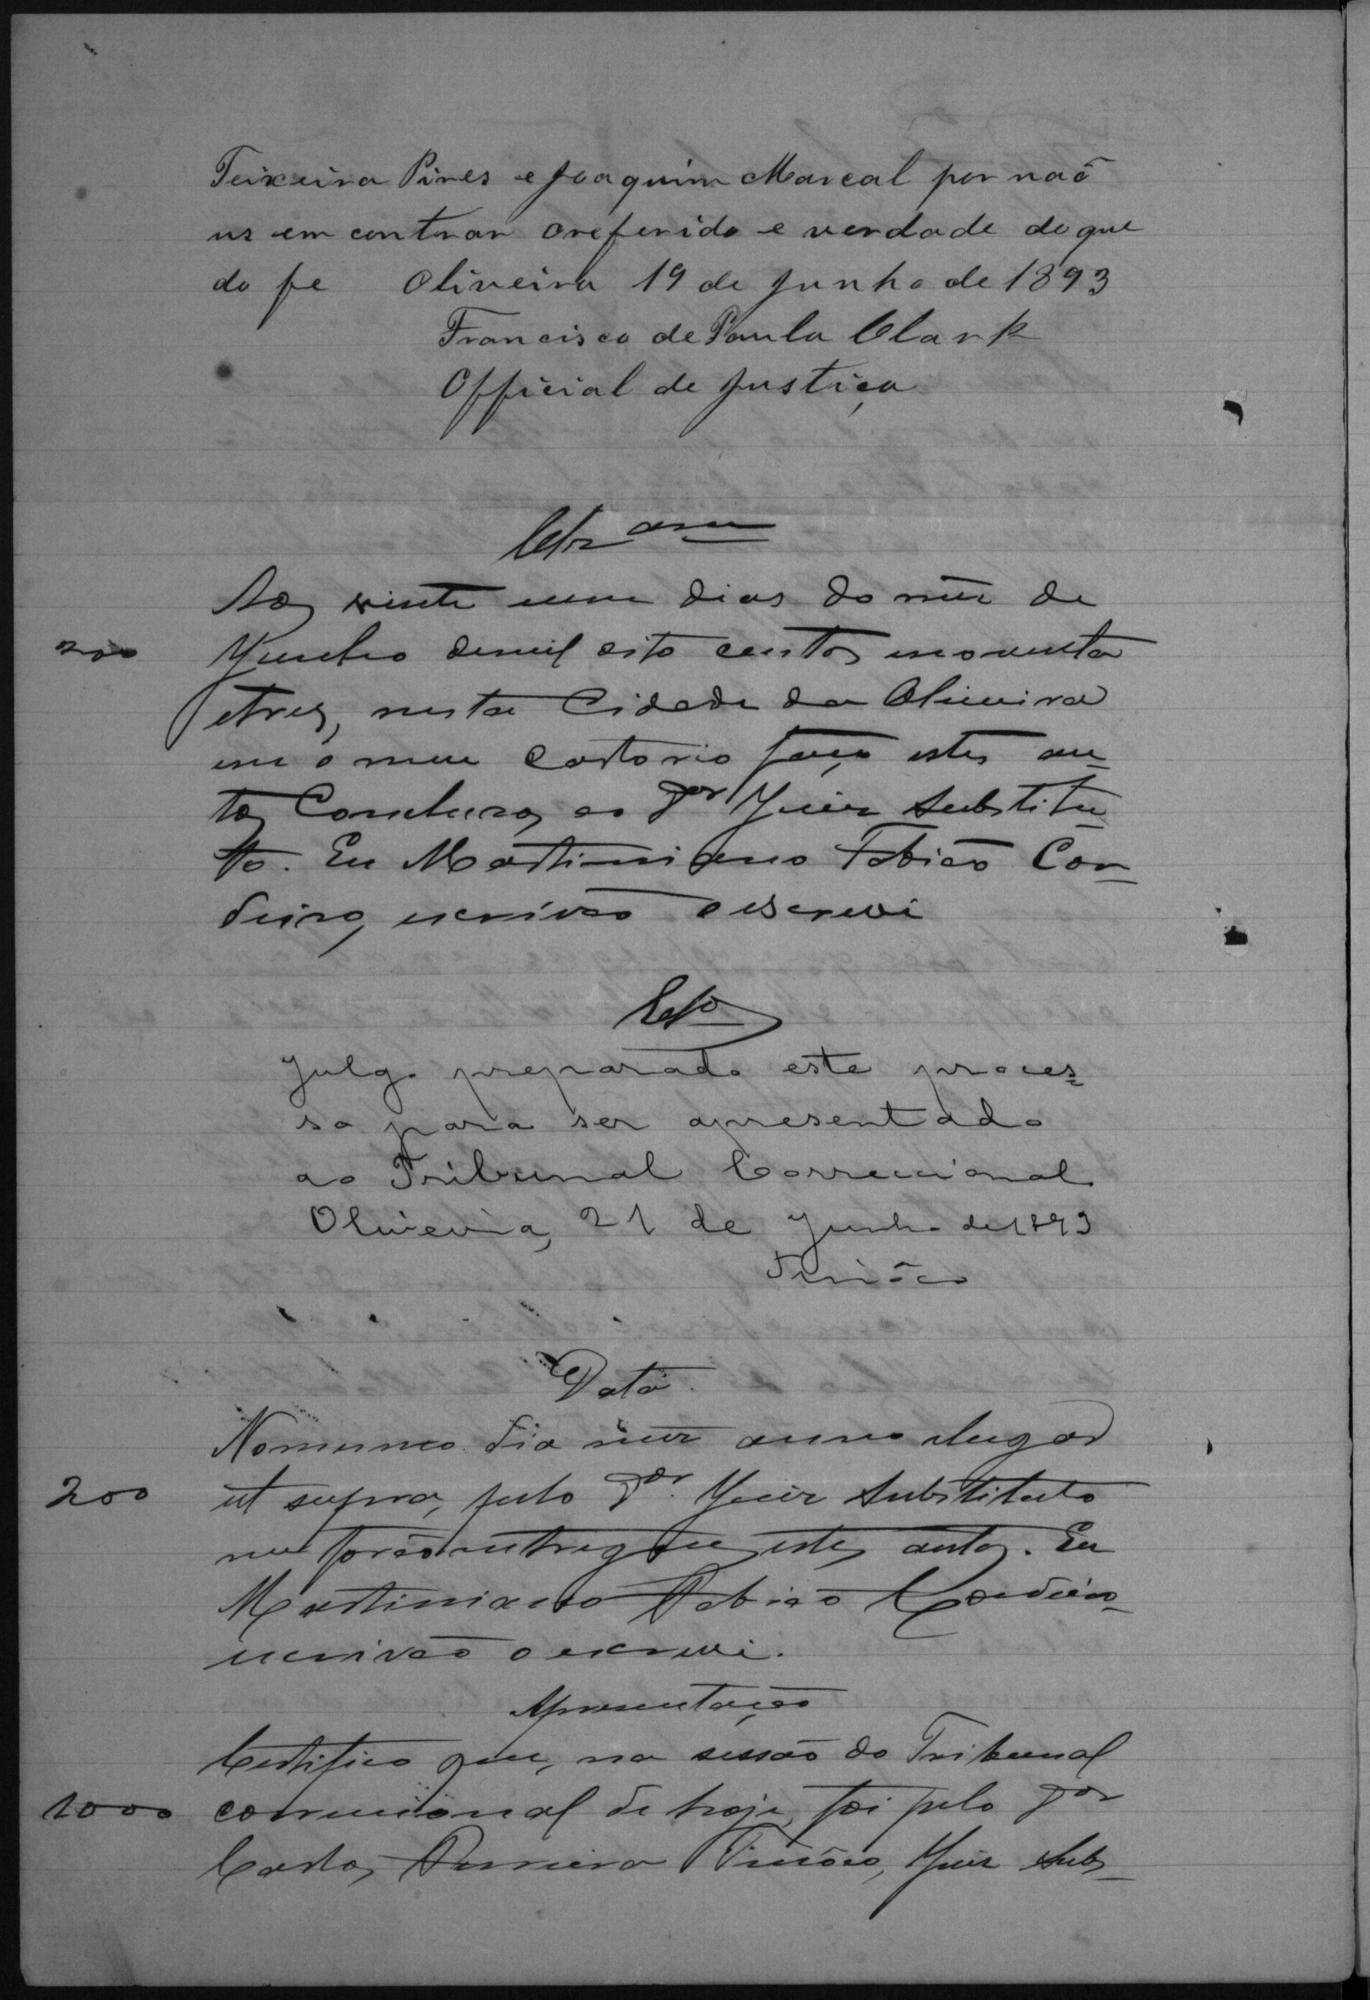 Teixeira Pires e Joaquim Marcal por naõ
us em contrar oreferido e verdade doque
do fe Oliveira 19 de Junho de 1893
Francisco de Paula Clark
Official de Justiça
Clsam
Aos vinte eum dias do mez de
200
Junho demil oito centos enoventa
etres, nesta Cidade da Oliveira
em o meu Cartorio faço estes au-
tos Conclusos ao Dor Juiz Substitu-
to. Eu Martiniano Fabião Cor-
deiro, escrivão o escrevi
Clso
Julgo preparado este proces-
so para ser apresentado
ao Tribunal Correccional
Oliveira, 21 de Junho de 1893
Tinôco
Data
Nomesmo dia mez anno elugar
200
ut supra, pelo Dor Juiz Substituto
me forão entregues estes autos. Eu
Martiniano Fabião Cordeiro
escrivão o escrevi.
Apresentação
Certifico que, na sessão do Tribunal
1000
correccional de hoje, foi pelo Dor
Carlos Ferreira Tinôco, Juiz Subs-